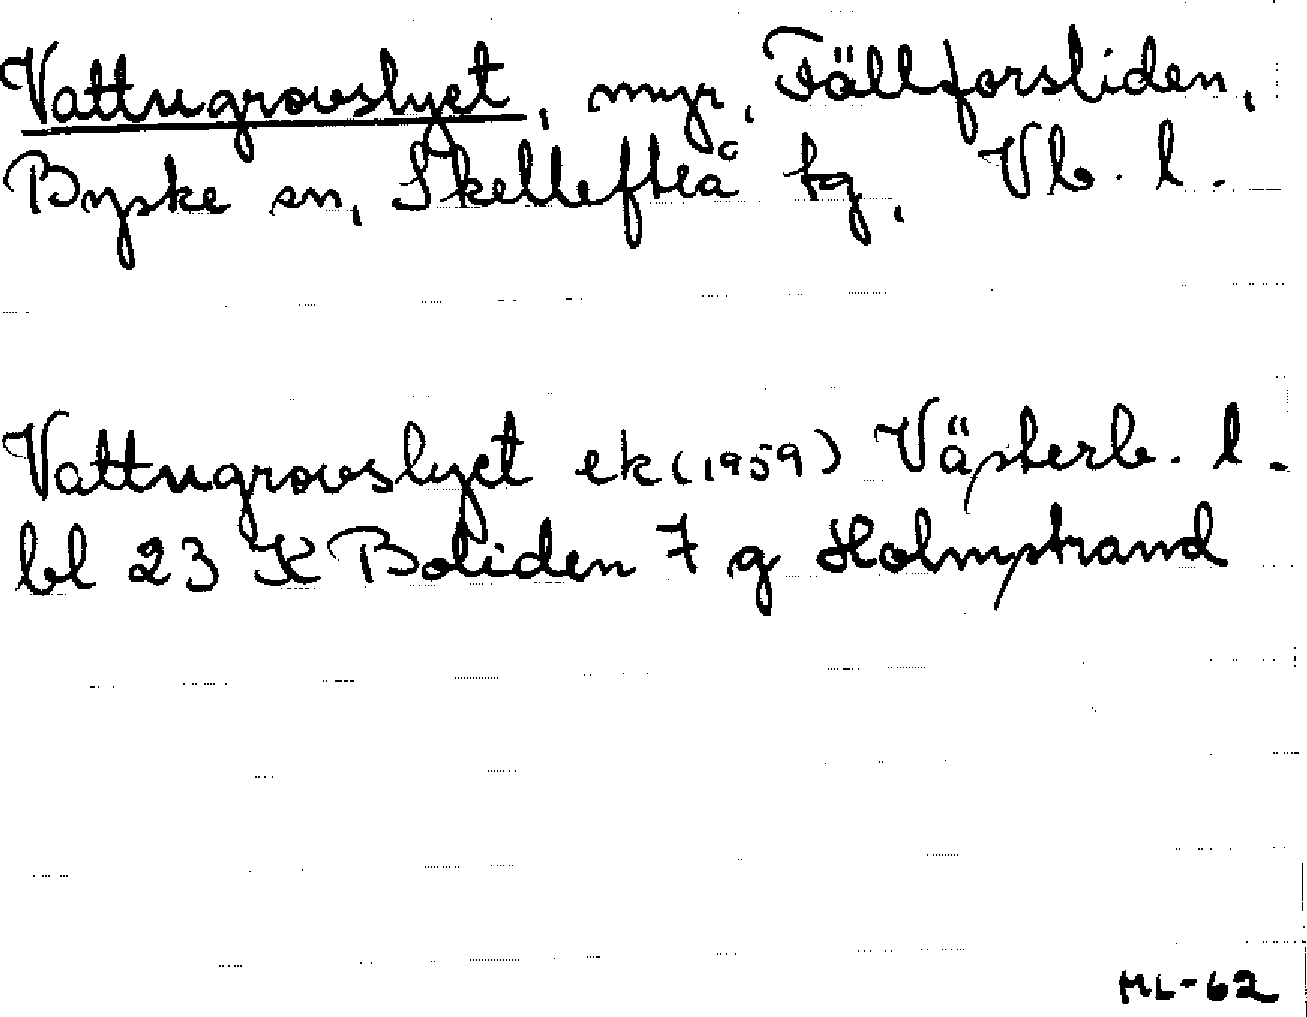 Vattugrovslyet, myr, Fällforsliden,
Byske sn, Skellefteå tg, Vb. l.
Vattugrovslyet ek (1959) Västerb. l.
bl 23 K Boliden 7 g Holmstrand
ML-62